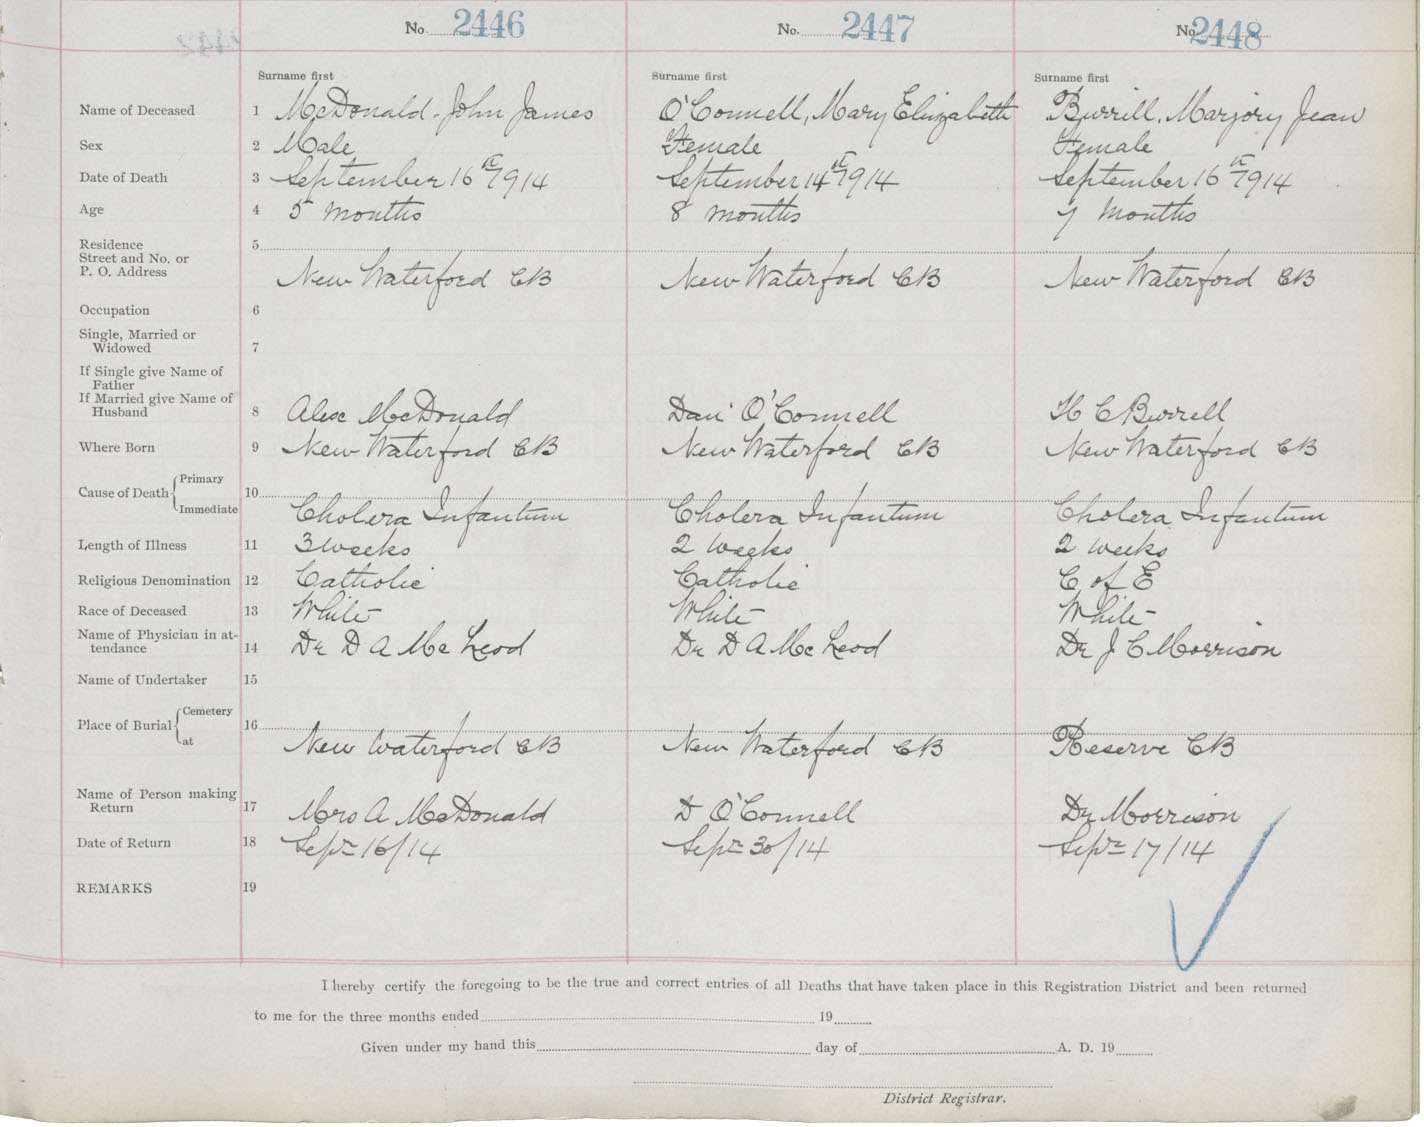 No. 2446 No. 2447 No. 2448
Surname first Surname first Surname first
Name of Deceased 1 McDonald, John James O'Connell, Mary Elizabeth Burrill, Marjory Jean
Sex 2 Male Female Female
Date of Death 3 September 16th 1914 September 14th 1914 September 16th 1914
Age 4 5 months 8 months 7 months
Residence 5
Street and No. or
P. O. Address New Waterford CB New Waterford CB New Waterford CB
Occupation 6
Single, Married or
Widowed 7
If Single give Name of
Father
If Married give Name of
Husband 8 Alex McDonald Dan' O'Connell H C Burrell
Where Born 9 New Waterford CB New Waterford CB New Waterford CB
Cause of Death Primary 10
Immediate Cholera Infantum Cholera Infantum Cholera Infantum
Length of Illness 11 3 weeks 2 weeks 2 weeks
Religious Denomination 12 Catholic Catholic C of E
Race of Deceased 13 White White White
Name of Physician in at-
tendance 14 Dr D A McLeod Dr D A McLeod Dr J C Morrison
Name of Undertaker 15
Place of Burial Cemetery 16
at New Waterford CB New Waterford CB Reserve CB
Name of Person making
Return 17 Mrs A McDonald D O'Connell Dr Morrison
Date of Return 18 Sept 16/14 Sept 30/14 Sept 17/14
REMARKS 19
I hereby certify the foregoing to be the true and correct entries of all Deaths that have taken place in this Registration District and been returned
to me for the three months ended 19
Given under my hand this day of A. D. 19
District Registrar.